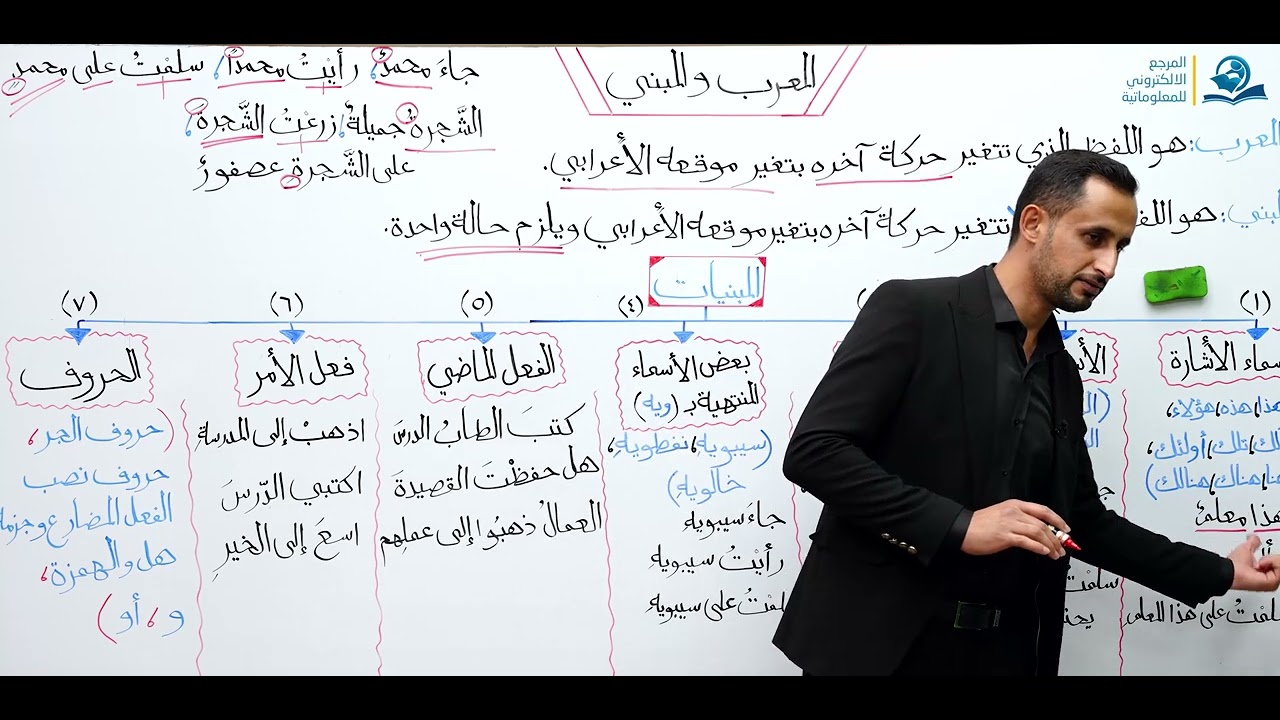 المرجع
الالكتروني
للمعلوماتية
المعرب والمبني
جاءَ محمدٌ، رأيْتُ محمداً، سلمْتُ على محمدٍ
الشَّجرةُ جميلةٌ، زرعْتُ الشَّجرةَ،
على الشَّجرةِ عصفورٌ
المعرب: هو اللفظ الذي تتغير حركة آخره بتغير موقعه الأعرابي.
هو تتغير حركة آخره بتغير موقعه الأعرابي ويلزم حالة واحدة.
المبنيات
(١)
الأشارة
هذا، هذه، هؤلاء،
تلك، أولئك،
هناك، هنالك)
هذا معلمٌ
على هذا المعلم
(٤)
بعض الأسماء
المنتهية بـ (ويه)
(سيبويهِ، نفطويهِ،
خالويهِ)
جاءَ سيبويهِ
رأيْتُ سيبويهِ
على سيبويهِ
(٥)
الفعل الماضي
كتبَ الطالبُ الدرسَ
هل حفظْتَ القصيدةَ
العمالُ ذهبُوا إلى عملِهم
(٦)
فعل الأمر
اذهبْ إلى المدرسةِ
اكتبي الدّرسَ
اسعَ إلى الخيرِ
(٧)
الحروف
(حروف الجر،
حروف نصب
الفعل المضارع وجزمه
هل والهمزة،
و، أو)